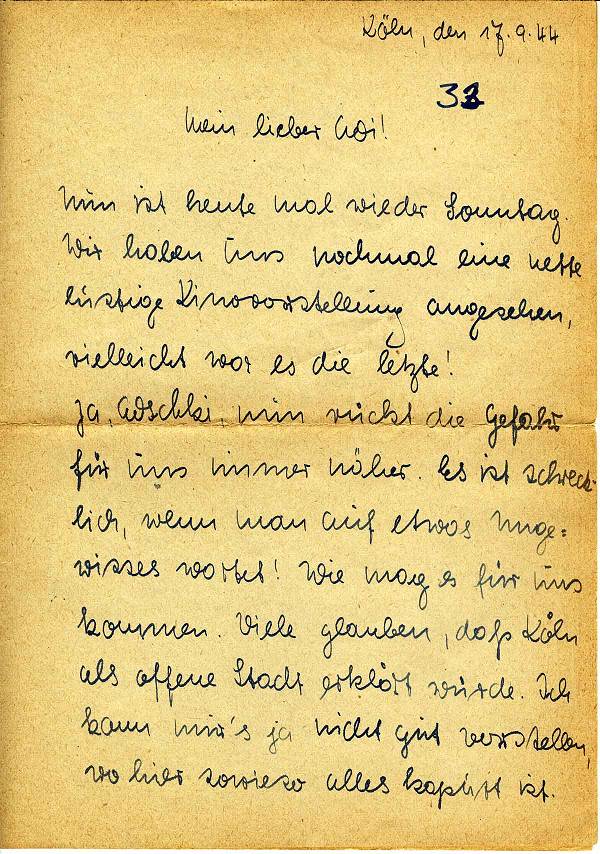 Köln, den 17.9.44
33
Mein lieber Adi!
Nun ist heute mal wieder Sonntag.
Wir haben uns nochmal eine nette
lustige Kinovorstellung angesehen,
vielleicht war es die letzte!
Ja, Adschki, nun rückt die Gefahr
für uns immer näher. Es ist schreck-
lich, wenn man auf etwas Unge=
wisses wartet! Wie mag es für uns
kommen. Viele glauben, daß Köln
als offene Stadt erklärt würde. Ich
kann mir's ja nicht gut vorstellen,
wo hier sowieso alles kaputt ist.